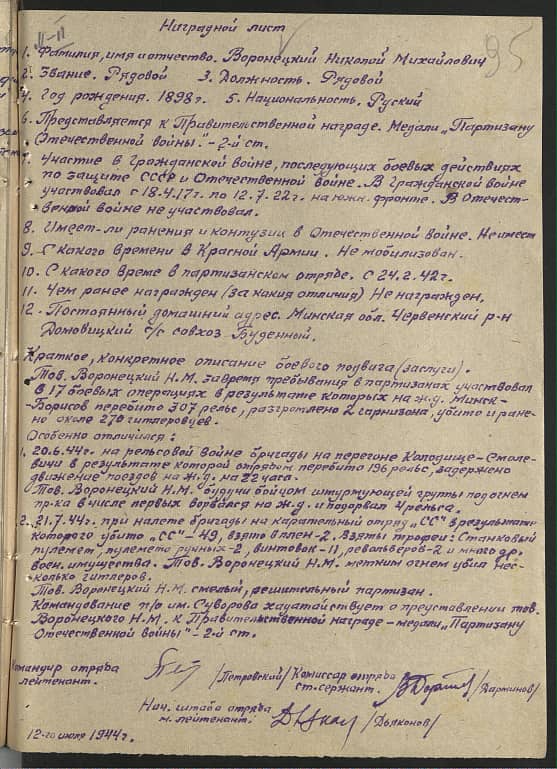 III-II
95
Наградной лист
1. Фамилия, имя и отчество. Воронецкий Николай Михайлович
2. Звание. Рядовой 3. Должность. Рядовой
4. Год рождения. 1898 г. 5. Национальность. Руский
6. Представляется к Правительственной награде. Медали „Партизану
Отечественной войны."-2-й ст.
Участие в Гражданской войне, последующих боевых действиях
по защите СССР и Отечественной войне. В Гражданской войне
участвовал с 18.4.17г. по 12.7.22г. на южн. фронте. В Отечест-
венной войне не участвовал.
8. Имеет-ли ранения и контузии в Отечественной войне. Не имеет
9. С какого времени в Красной Армии. Не мобилизован.
10. С какого време в партизанском отряде. С 24.2.42г.
11. Чем ранее награжден (за какия отличия) Не награжден.
12. Постоянный домашний адрес. Минская обл. Червенский р-н
Домовицкий с/с совхоз Буденный.
Краткое, конкретное описание боевого подвига (заслуги).
Тов. Воронецкий Н.М. завремя пребывания в партизанах участвовал
в 17 боевых операциях в результате которых на ж.д. Минск-
Борисов перебито 307 рельс, разгромлено 2 гарнизона, убито и ране-
но около 270 гитлеровцев.
Особенно отличился:
1. 20.6.44г. на рельсовой войне бригады на перегоне Колодище-Смоле-
вичи в результате которой отрядом перебито 196 рельс, задержено
движение поездов на ж.д. на 22 часа.
Тов. Воронецкий Н.М. будучи бойцом штурмующей групы под огнем
пр-ка в числе первых ворвался на ж.д. и подорвал 4 рельса.
2. 21.7.44г. при налете бригады на карательный отряд „СС" в результате
которого убито „СС"-49, взято в плен-2. Взяты трофеи: Станковый
пулемет, пулемето ручных-2, винтовок-11, револьверов-2 и много др.
воен. имущества. Тов. Воронецкий Н.М. метким огнем убил нес-
колько гитлеров.
Тов. Воронецкий Н.М. смелый, решительный партизан.
Командование п/о им. Суворова хадатайствует о представлении тов.
Воронецкого Н.М. к Правительственной награде-медали „Партизану
Отечественной войны"-2-й ст.
Командир отряда /Петровский/ Комиссар отряда
лейтенант. ст. сержант. /Дарминов/
Нач. штаба отряда
м. лейтенант: /Дьяконов/
12-го июля 1944г.